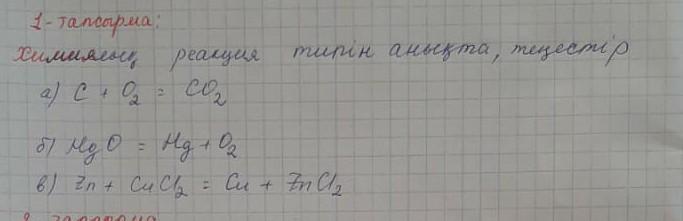 1-тапсырма:
Химиялық реакция типін анықта, теңестір
а) C + O₂ = CO₂
б) HgO = Hg + O₂
в) Zn + CuCl₂ = Cu + ZnCl₂